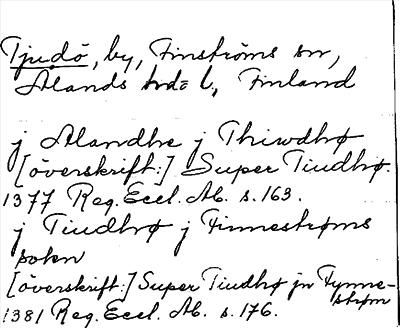 Tjudö, by, Finströms sn,
Ålands hd= l, Finland
j Alandhe j Thiwdhø
[överskrift:] Super Tiudhø.
1377 Reg. Eccl. Ab. s. 163.
j Tiudhø j Finnestrøms
sokn
[överskrift:] Super Tiudhø jn Fynne-
strøm
1381 Reg. Eccl. Ab. s. 176.